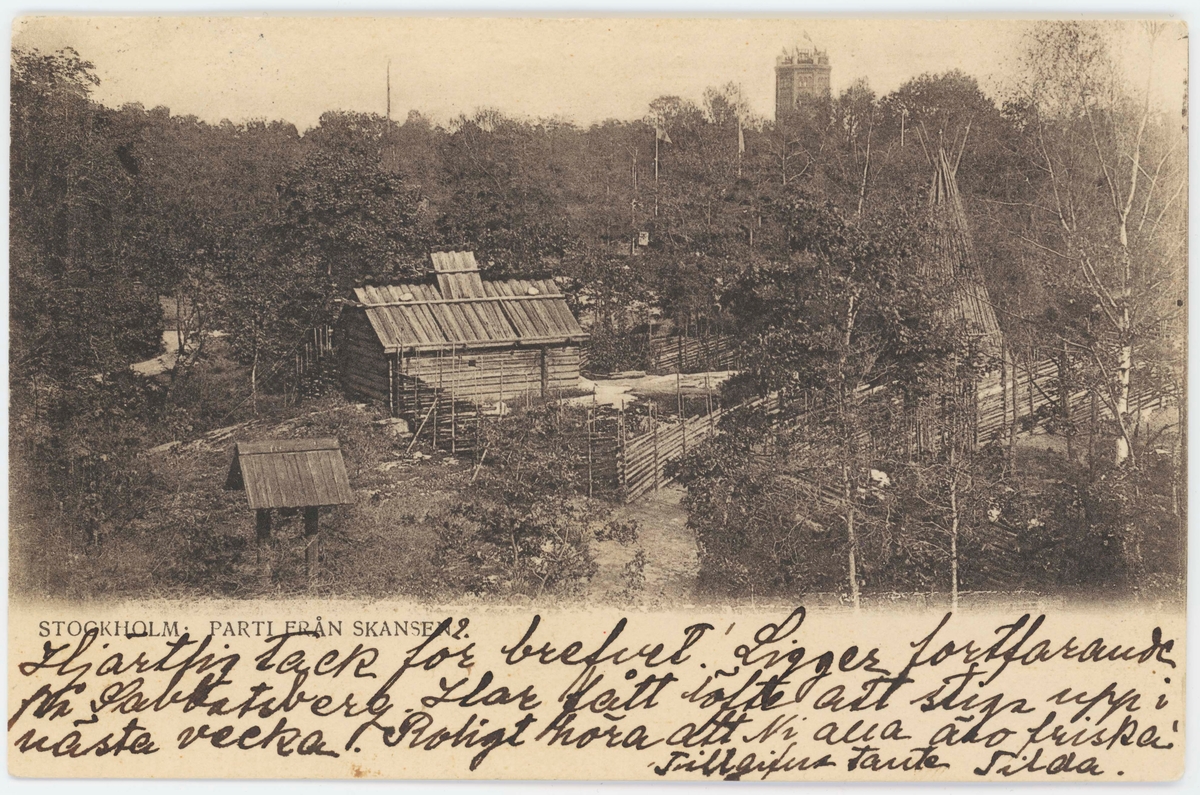 STOCKHOLM: PARTI FRÅN SKANSEN.
Hjärtlig tack för brefvet! Ligger fortfarande
på Sabbatsberg. Har fått löfte att stiga upp i
nästa vecka! Roligt höra att Ni alla äro friska!
Tillgifna tante Tilda.